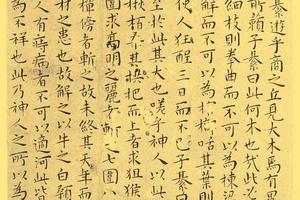 綦遊乎商之丘見大木焉有異
所賴子綦曰此何木也哉此必
細枝則拳曲而不可以為棟梁
而不可以為棺槨咶其葉則
使人狂酲三日而不已子綦曰
至於此其大也嗟乎神人以此
楸柏桑其拱把而上者求狙猴
圍求高明之麗者斬之七圍八
樿傍者斬之故未終其天年而
材之患也故解之以牛之白顙
人有痔病者不可以適河此皆
為不祥也此乃神人之所以為